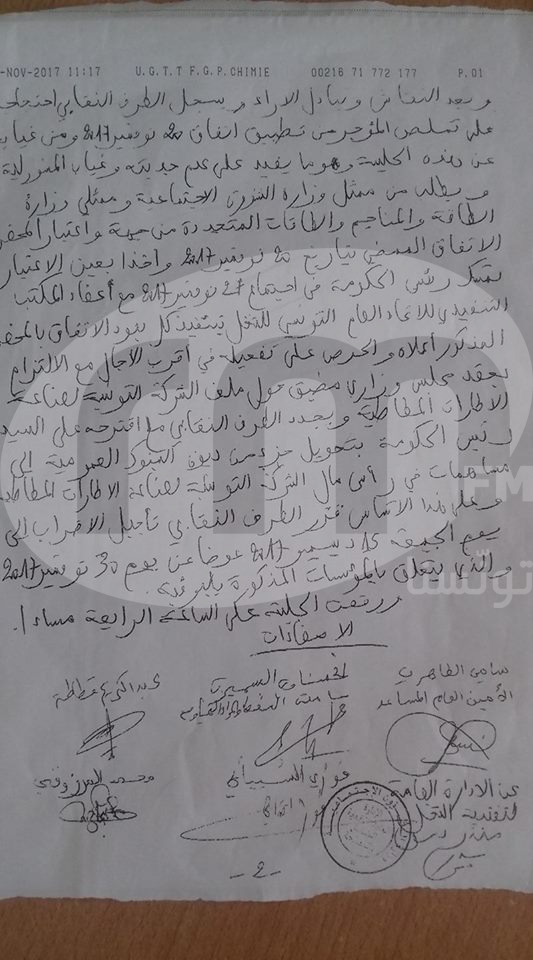 -NOV-2017 11:17 U.G.T.T F.G.P.CHIMIE 00216 71 772 177 P.01
و بعد النقاش وتبادل الآراء و يسجل الطرف النقابي احتجاجه
على تملص المؤجر من تطبيق اتفاق 20 نوفمبر 2017 ومن غيابه
عن هذه الجلسة وهو ما يفيد على عدم جديته وغياب المسؤولية
و يطلب من ممثل وزارة الشؤون الاجتماعية و ممثلي وزارة
الطاقة والمناجم والطاقات المتجددة من جهة و اعتبار المحضر
الاتفاق الممضى بتاريخ 20 نوفمبر 2017 و اخذا بعين الاعتبار
تمسك رئيس الحكومة في اجتماع 27 نوفمبر 2017 مع أعضاء المكتب
التنفيذي للاتحاد العام التونسي للشغل بتنفيذ كل بنود الاتفاق بالمحضر
المذكور أعلاه والحرص على تفعيله في أقرب الآجال مع الالتزام
بعقد مجلس وزاري مضيق حول ملف الشركة التونسية لصناعة
الإطارات المطاطية و يجدد الطرف النقابي ما اقترحه على السيد
رئيس الحكومة بتحويل جزء من ديون البنوك العمومية إلى
مساهمات في رأس مال الشركة التونسية لصناعة الإطارات المطاطية
وعلى هذا الأساس تقرر الطرف النقابي تأجيل الإضراب إلى
يوم الجمعة 15 ديسمبر 2017 عوضا عن يوم 30 نوفمبر 2017
والذي يتعلق بالمؤسسات المذكورة بالبرقية.
ورفعت الجلسة على الساعة الرابعة مساء /.
الإمضاءات
سامي الطاهري
الأمين العام المساعد
السميري
عبد الكريم
فوزي الشيباني
محمد المرزوقي
عن الإدارة العامة
لتفقدية الشغل
- 2 -
m
FM
تونسنا